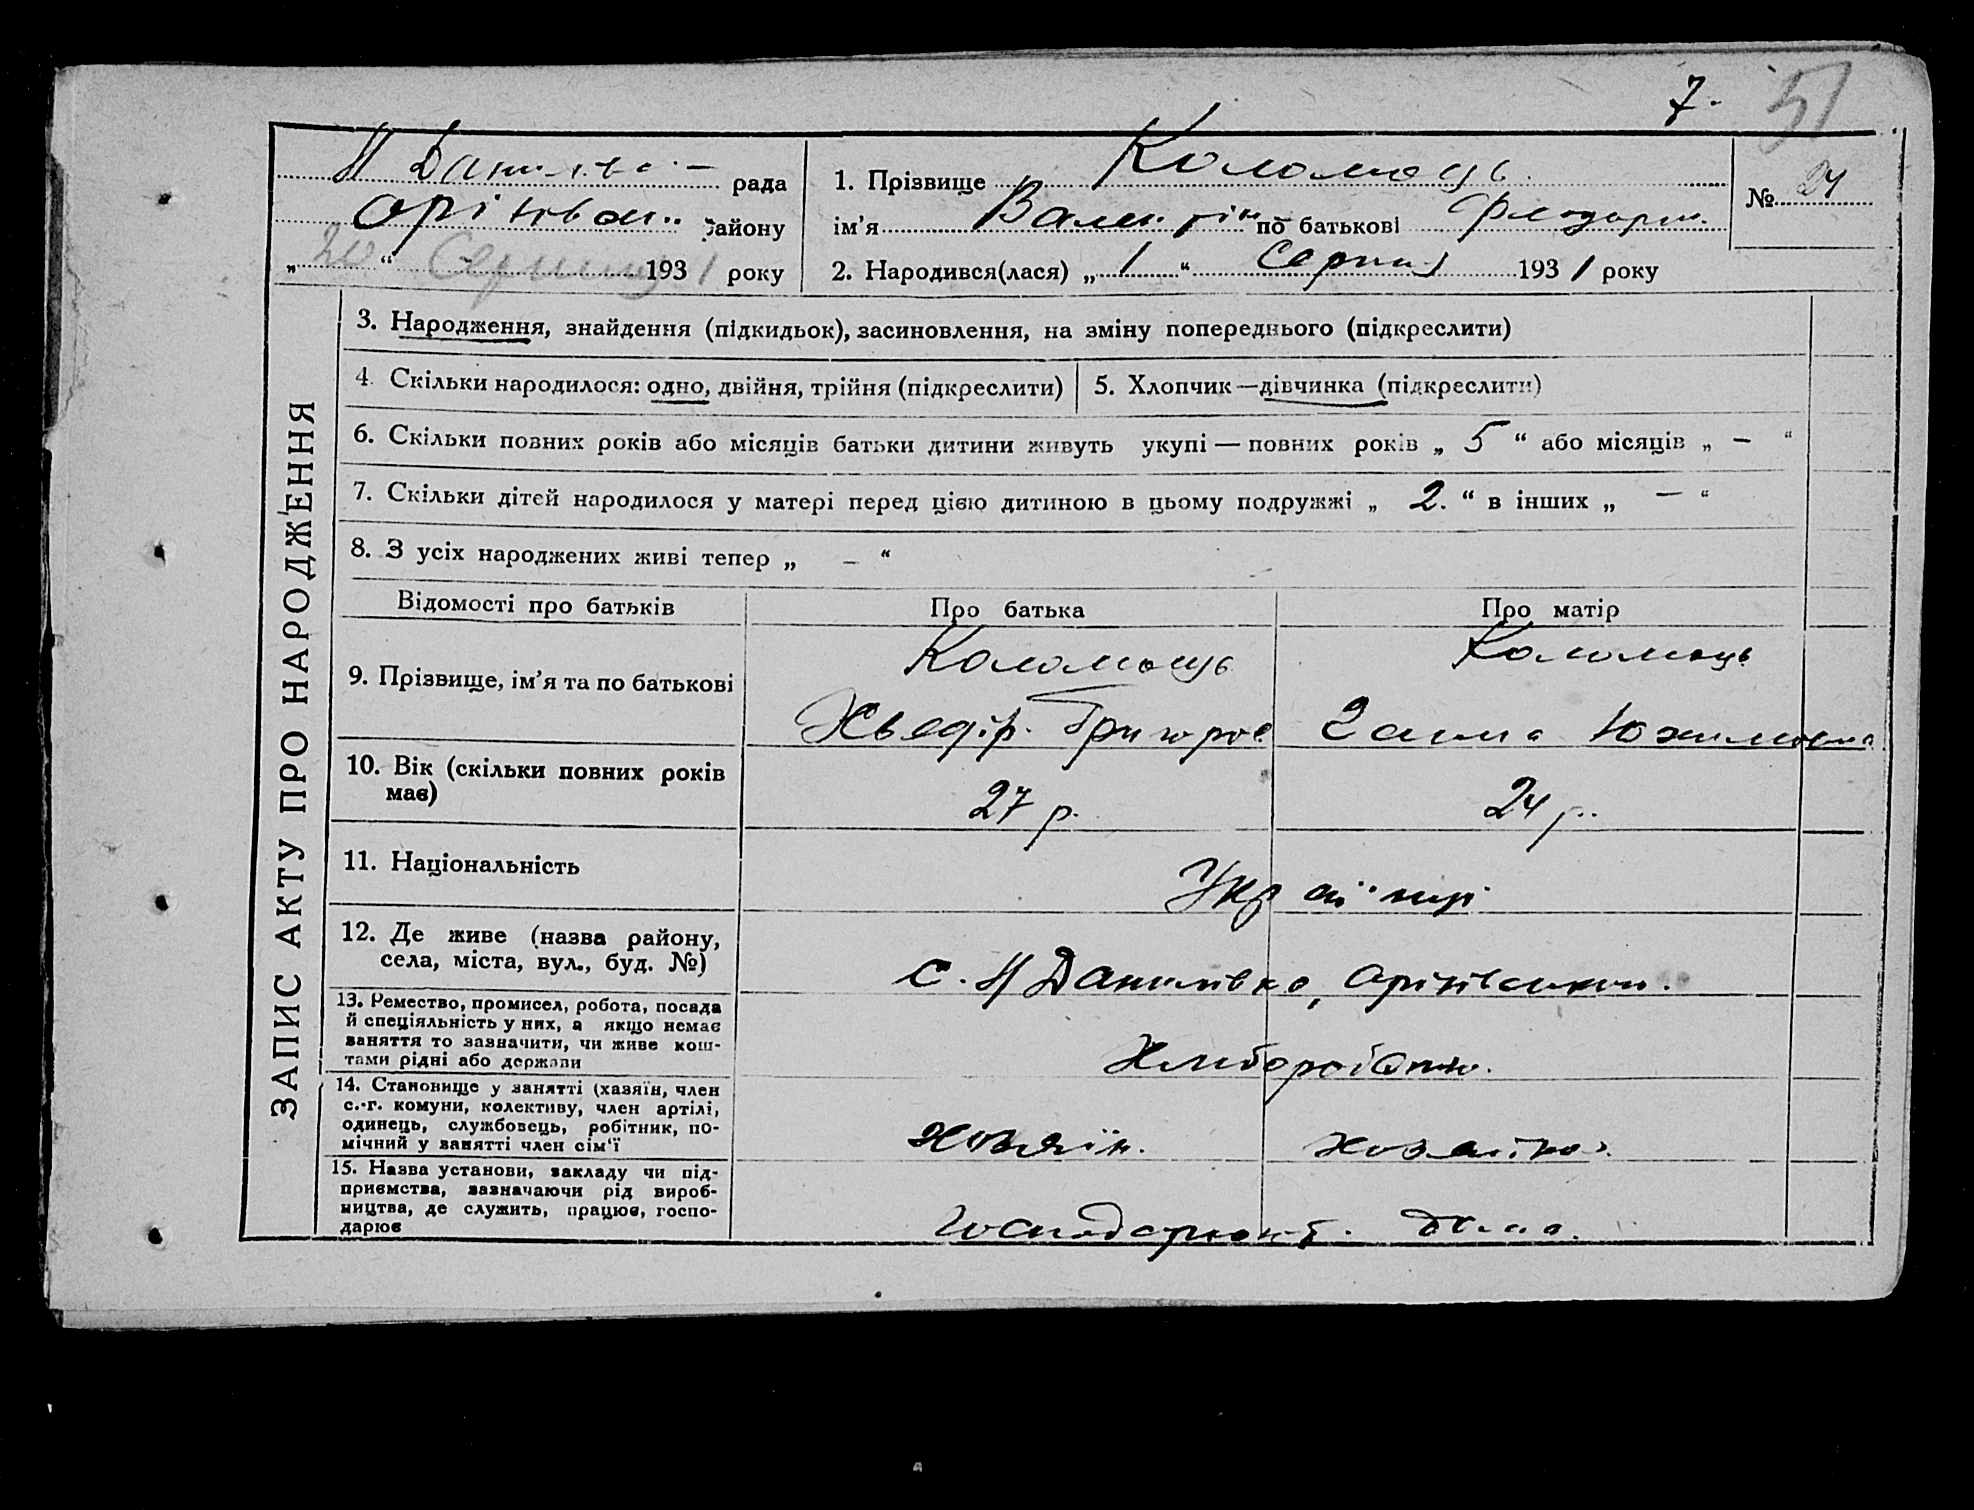 7. 51
Н Данилівс— рада
Оріхівськ.. району
„20“ Серпня 1931 року
1. Прізвище Коломоєць
ім’я Валентін по батькові Федорів.
№ 24
2. Народився(лася) „1“ Серпня 1931 року
ЗАПИС АКТУ ПРО НАРОДЖЕННЯ
3. Народження, знайдення (підкидьок), засиновлення, на зміну попереднього (підкреслити)
4. Скільки народилося: одно, двійня, трійня (підкреслити)
5. Хлопчик—дівчинка (підкреслити)
6. Скільки повних років або місяців батьки дитини живуть укупі — повних років „5“ або місяців „–“
7. Скільки дітей народилося у матері перед цією дитиною в цьому подружжі „2.“ в інших „—“
8. З усіх народжених живі тепер „–“
Відомості про батьків
Про батька
Про матір
9. Прізвище, ім’я та по батькові
Коломоєць
Хведір. Григоров
Коломоєць
Ганна Юхимовна
10. Вік (скільки повних років
має)
27 р.
24 р.
11. Національність
Українці
12. Де живе (назва району,
села, міста, вул., буд. №)
с. Н Данилівка,
13. Ремество, промисел, робота, посада
й спеціяльність у них, а якщо немає
заняття то зазначити, чи живе кош-
тами рідні або держави
Хліборобство.
14. Становище у занятті (хазяїн, член
с.-г. комуни, колективу, член артілі,
одинець, службовець, робітник, по-
мічний у занятті член сім‘ї
хозяїн.
хозяйка.
15. Назва установи, закладу чи під-
приємства, зазначаючи рід вироб-
ництва, де служить, працює, госпо-
дарює
Господарюют. дома.